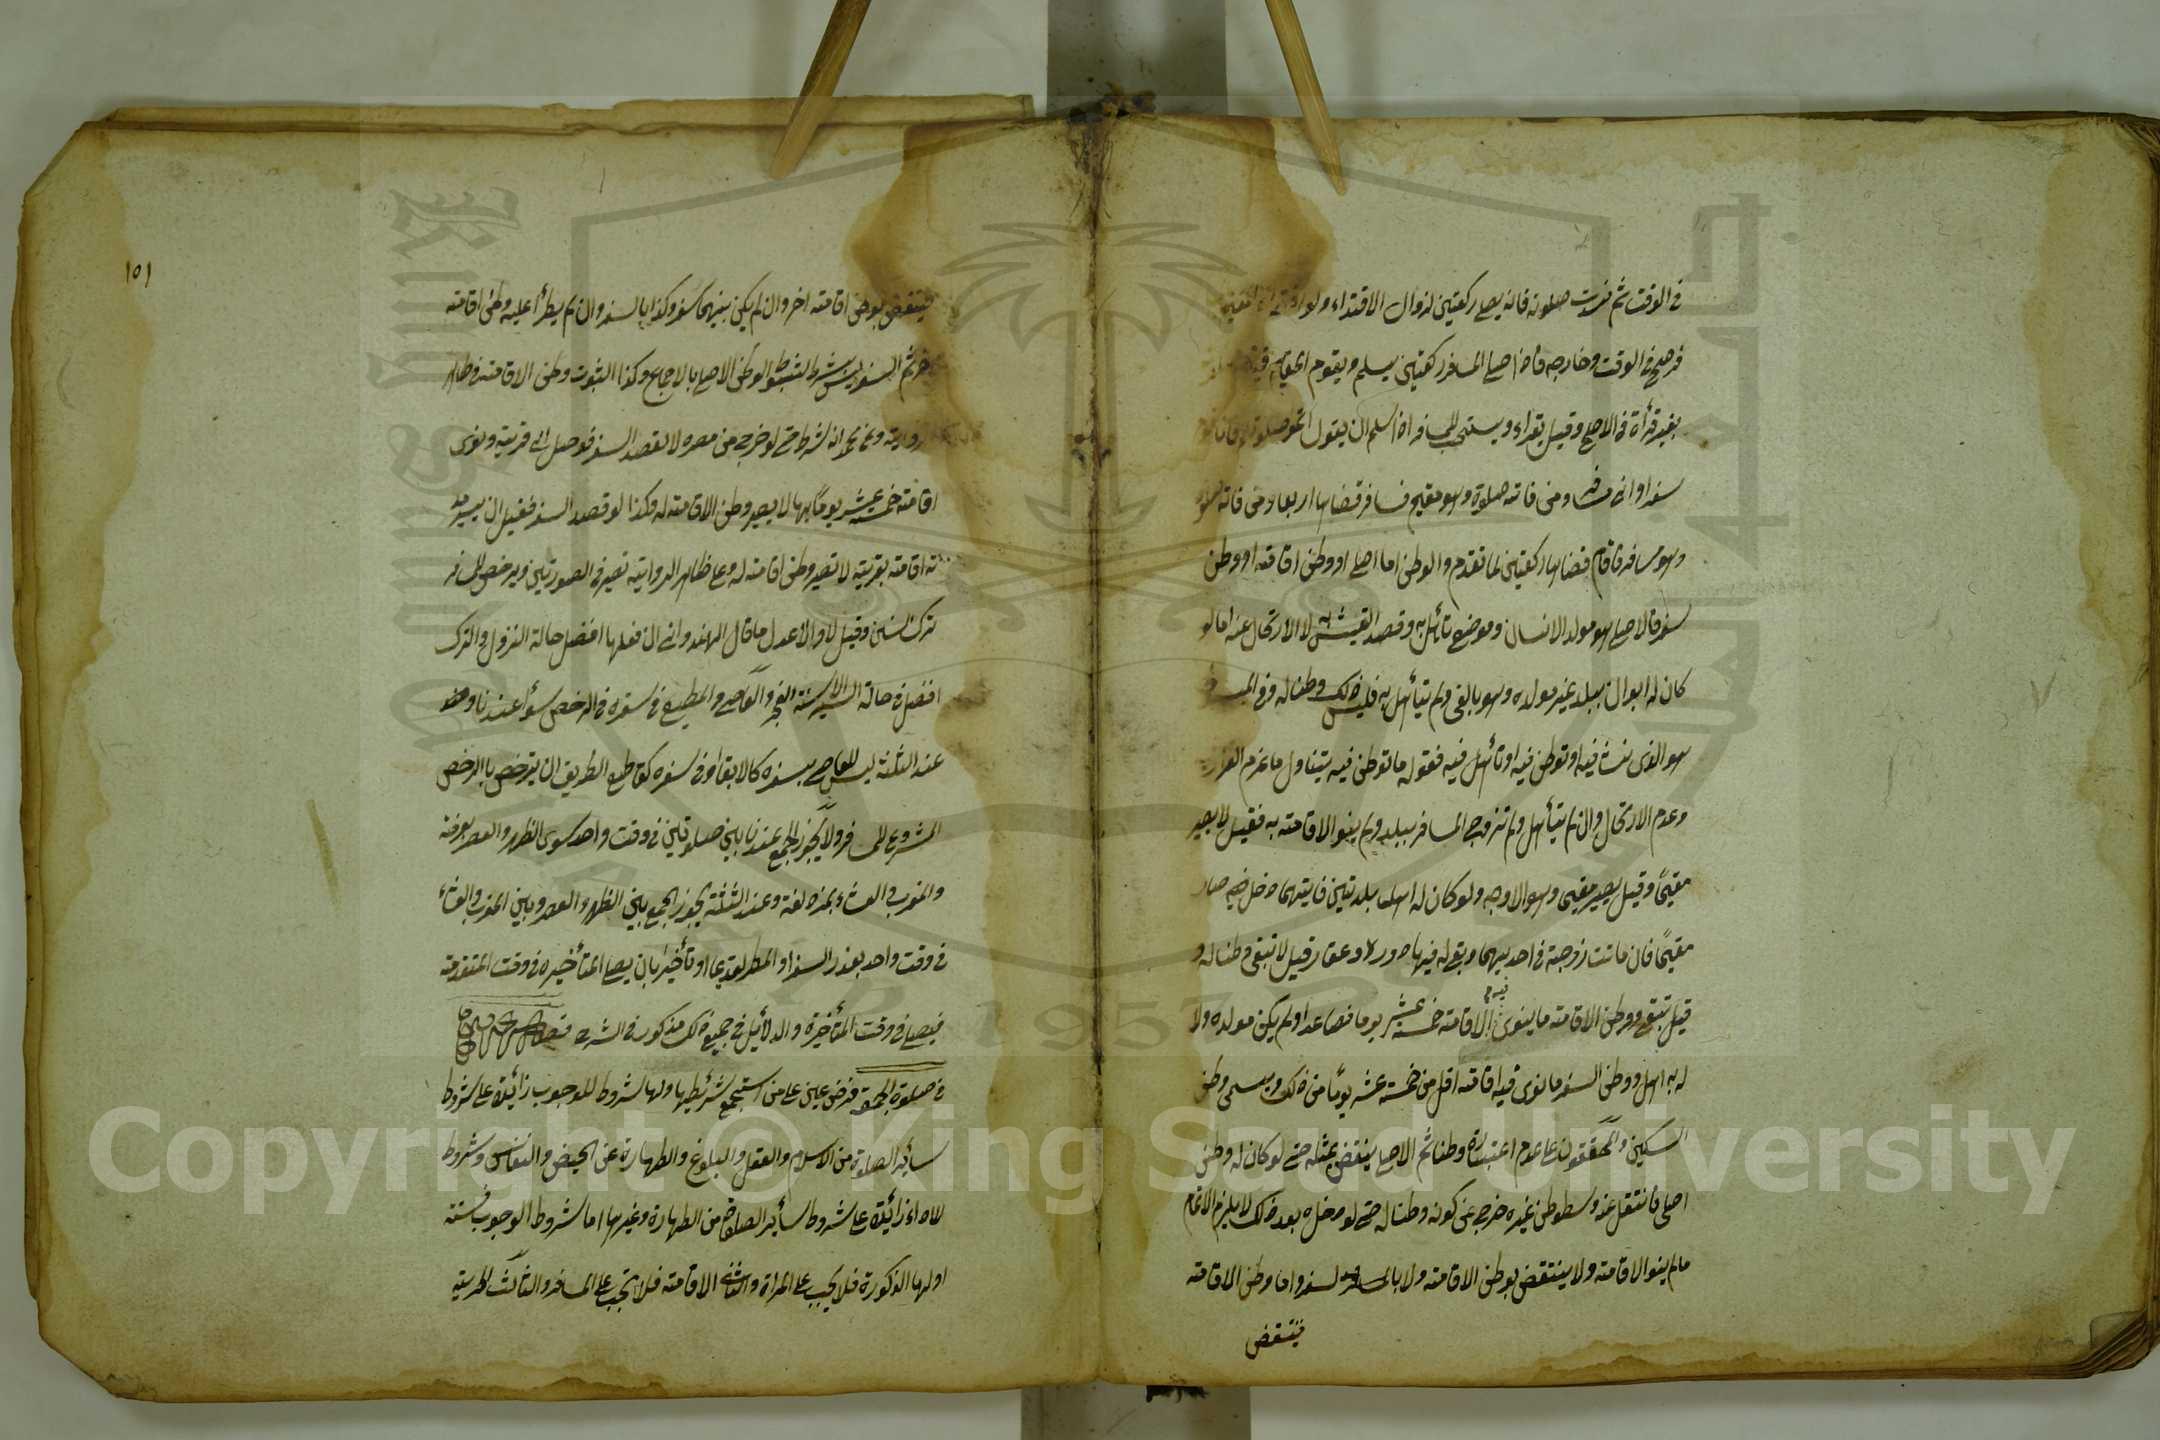 في الوقت ثم فسدت صلوته فانه يصلي ركعتين لزوال الاقتداء ولو اقتدى المقيم
فر صح في الوقت وخارجه فاذا صلى المسافر ركعتين يسلم ويقوم المقيم
بغير قرأة في الاصح وقيل يقراء ويستحب للمسافر اذا سلم ان يقول اتموا صلوتكم فانا قوم
سفر او اني مسافر ومن فاته صلوة وهو مقيم فسافر قضاها اربعا ومن فاته صلوة
وهو مسافر فاقام قضاها ركعتين لما تقدم والوطن اما اصلي او وطن اقامة او وطن
سفر فالاصلي هو مولد الانسان وموضع تأهل به وقصد التعيش به لا الارتحال عنه اما لو
كان له ابوان ببلد غير مولده وهو بالغ ولم يتأهل به فليس ذلك وطنا له وفي
هو الذي نشأ فيه او توطن فيه او تأهل فيه فقوله ما توطن فيه يتناول ما عزم القرار
وعدم الارتحال وان لم يتأهل ولم تزوج المسافر ببلد ولم ينو الاقامة به فقيل لا يصير
مقيمًا وقيل يصير مقيمى وهو الاوجه ولو كان له اهل ببلدتين فايتهما دخل فيه صار
مقيمًا فان ماتت زوجته في احديهما وبقي له فيها دور وعقار قيل لا تبقى وطنا له و
قيل تبقى ووطن الاقامة ما ينوى فيه الاقامة خمسة عشر يوما فصاعدا ولم يكن مولده ولا
له به اهل ووطن السفر ما نوى فيه اقامة اقل من خمسة عشر يومًا من ذلك ويسمى وطن
السكنى والمحققون على عدم اعتباره وطنا ثم الاصلي ينتقض بمثله حتى لو كان له وطن
اصلي فانتقل عنه وتوطن غيره خرج عن كونه وطنا له حتى لو دخله بعد ذلك لا يلزم الاتمام
ما لم ينو الاقامة ولا ينتقض بوطن الاقامة ولا بالسفر واما وطن الاقامة
فينتقض
١٥١
فينتقض بوطن اقامة اخر وان لم يكن بينهما سفر وكذا بالسفر وان لم يطرأ عليه وطن اقامة
اخر ثم السفر ليس بشرط لثبوت الوطن الاصلي بالاجماع وكذا لثبوت وطن الاقامة في ظاهر
الرواية وعن محمد انه شرط حتى لو خرج من مصره لا لقصد السفر فوصل الى قرية ونوى
اقامة خمسة عشر يومًا بها لا يصير وطن الاقامة له وكذا لو قصد السفر فقبل ان يسير مدة
اقامة بقرية لا تصير وطن اقامة له وعلى ظاهر الرواية تصير في الصورتين ويرخص للمسافر
ترك السنن وقيل لا والاعدل ما قال الهندواني ان فعلها افضل حالة النزول والترك
افضل في حالة السير الا سنة الفجر والعاصي والمطيع في سفره في الرخص سوأ عندنا
عند الثلثة ليس للعاصي بسفره كالابق او في سفره كقاطع الطريق ان يترخص بالرخص
المشروع للمسافر ولا يجوز الجمع عندنا بين صلوتين في وقت واحد سوى الظهر والعصر بعرفة
والمغرب والعشاء بمزدلفة وعند الثلثة يجوز الجمع بين الظهر والعصر وبين المغرب والعشاء
في وقت واحد بعذر السفر او المطر تقديما او تأخيرا بان يصلى المتأخيره في وقت المتقدمة
فيصلي في وقت المتأخيرة والدلائيل في جميع ذلك مذكور في الشرح فصل
في صلوة الجمعة فرض عين على من استجمع شرئيطها ولها شروط للوجوب زائيدة على شروط
سأير الصلوة من الاسلام والعقل والبلوغ والطهارة عن الحيض والنفاس وشروط
للاداء زائيدة على شروط سأير الصلوة من الطهارة وغيرها اما شروط الوجوب فستة
اولها الذكورة فلا يجب على المراة والثانى الاقامة فلا تجب على المسافر والثالث الحرية